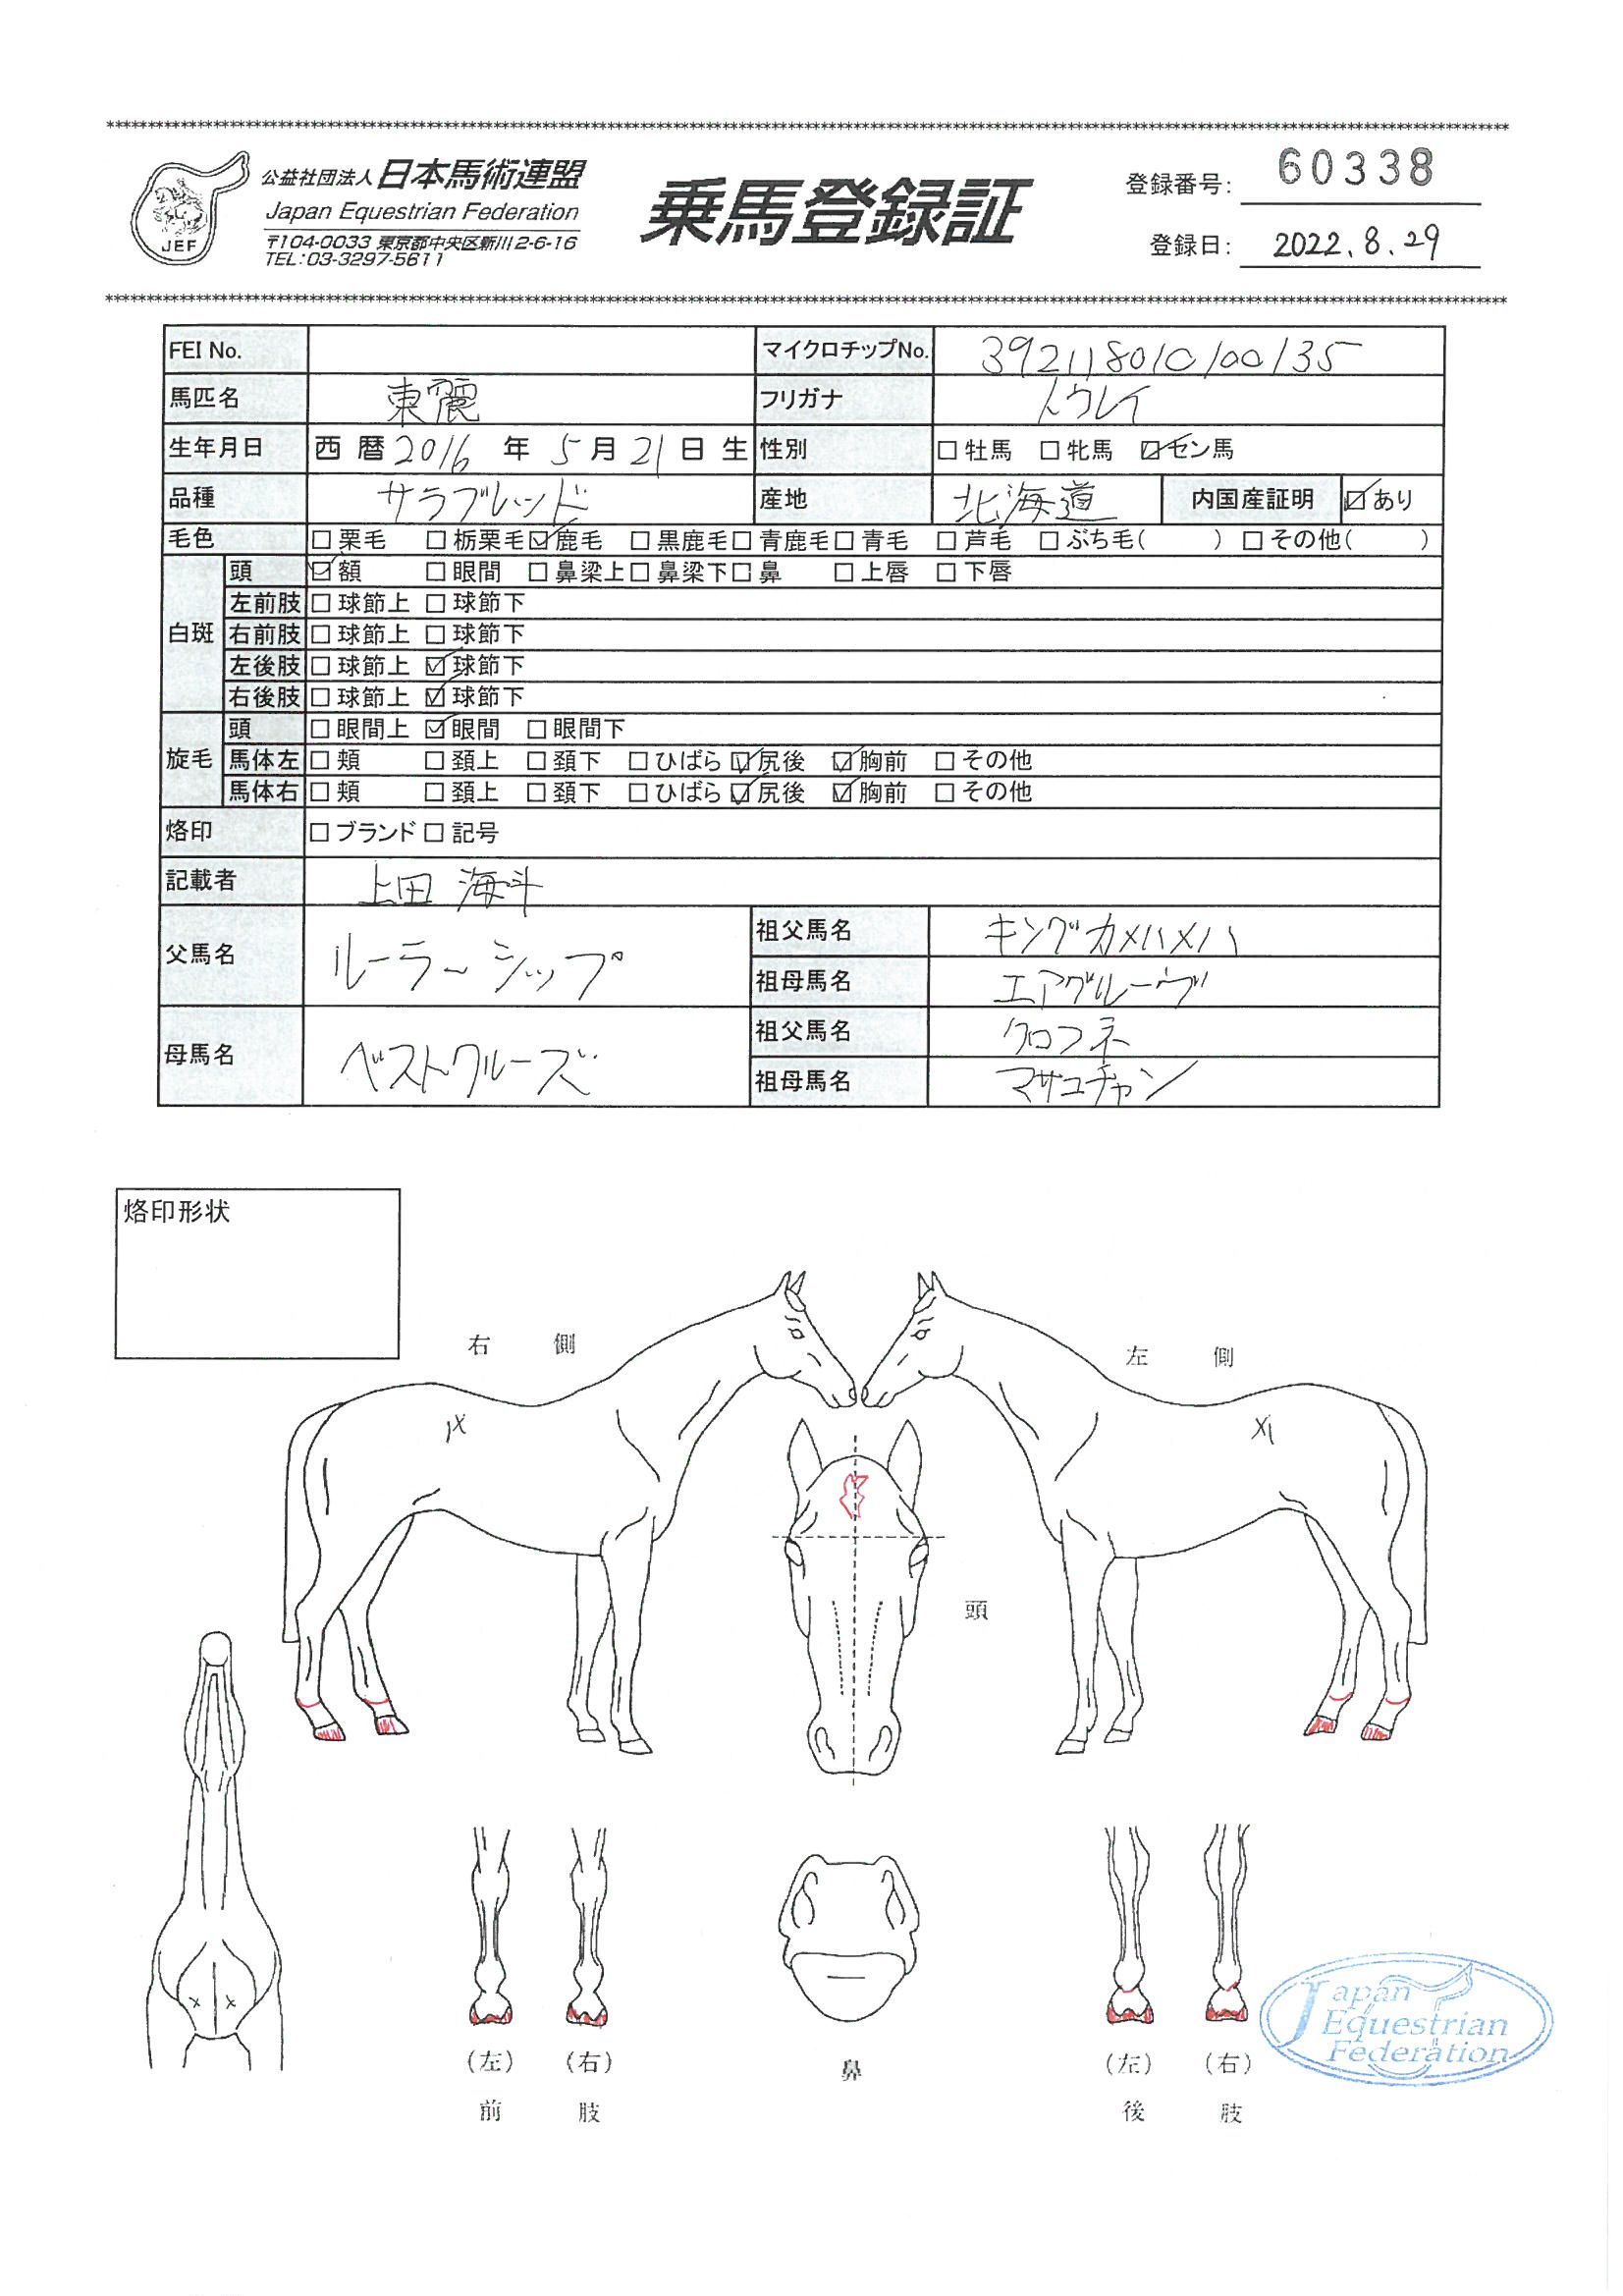 公益社団法人 日本馬術連盟
Japan Equestrian Federation
〒104-0033 東京都中央区新川2-6-16
TEL:03-3297-5611
JEF
乗馬登録証
登録番号: 60338
登録日: 2022.8.29
FEI No. マイクロチップNo. 392118010100135
馬匹名 東麗 フリガナ トウレイ
生年月日 西暦 2016 年 5 月 21 日 生 性別 □牡馬 □牝馬 ☑セン馬
品種 サラブレッド 産地 北海道 内国産証明 ☑あり
毛色 □栗毛 □栃栗毛 ☑鹿毛 □黒鹿毛 □青鹿毛 □青毛 □芦毛 □ぶち毛( ) □その他( )
白斑 頭 ☑額 □眼間 □鼻梁上 □鼻梁下 □鼻 □上唇 □下唇
左前肢 □球節上 □球節下
右前肢 □球節上 □球節下
左後肢 □球節上 ☑球節下
右後肢 □球節上 ☑球節下
旋毛 頭 □眼間上 ☑眼間 □眼間下
馬体左 □頬 □頚上 □頚下 □ひばら ☑尻後 ☑胸前 □その他
馬体右 □頬 □頚上 □頚下 □ひばら ☑尻後 ☑胸前 □その他
烙印 □ブランド □記号
記載者 上田 海斗
父馬名 ルーラーシップ 祖父馬名 キングカメハメハ
祖母馬名 エアグルーヴ
母馬名 ベストクルーズ 祖父馬名 クロフネ
祖母馬名 マサコチャン
烙印形状
右側
左側
頭
(左) (右)
前肢
鼻
(左) (右)
後肢
Japan
Equestrian
Federation